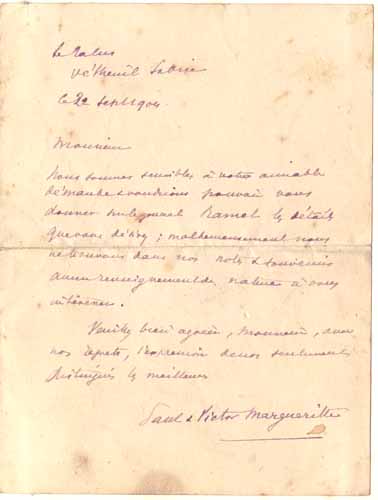 Le Palus
Vétheuil
le 20 Sept 1904
Monsieur
Nous sommes sensibles à votre aimable
demande & voudrions pouvoir vous
donner sur le général les détails
que vous désirez ; malheureusement nous
ne trouvons dans nos notes & souvenirs
aucun renseignement de nature à vous
intéresser.
Veuillez bien agréer, Monsieur, avec
nos regrets, l'expression de nos sentiments
distingués les meilleurs
Paul & Victor Margueritte